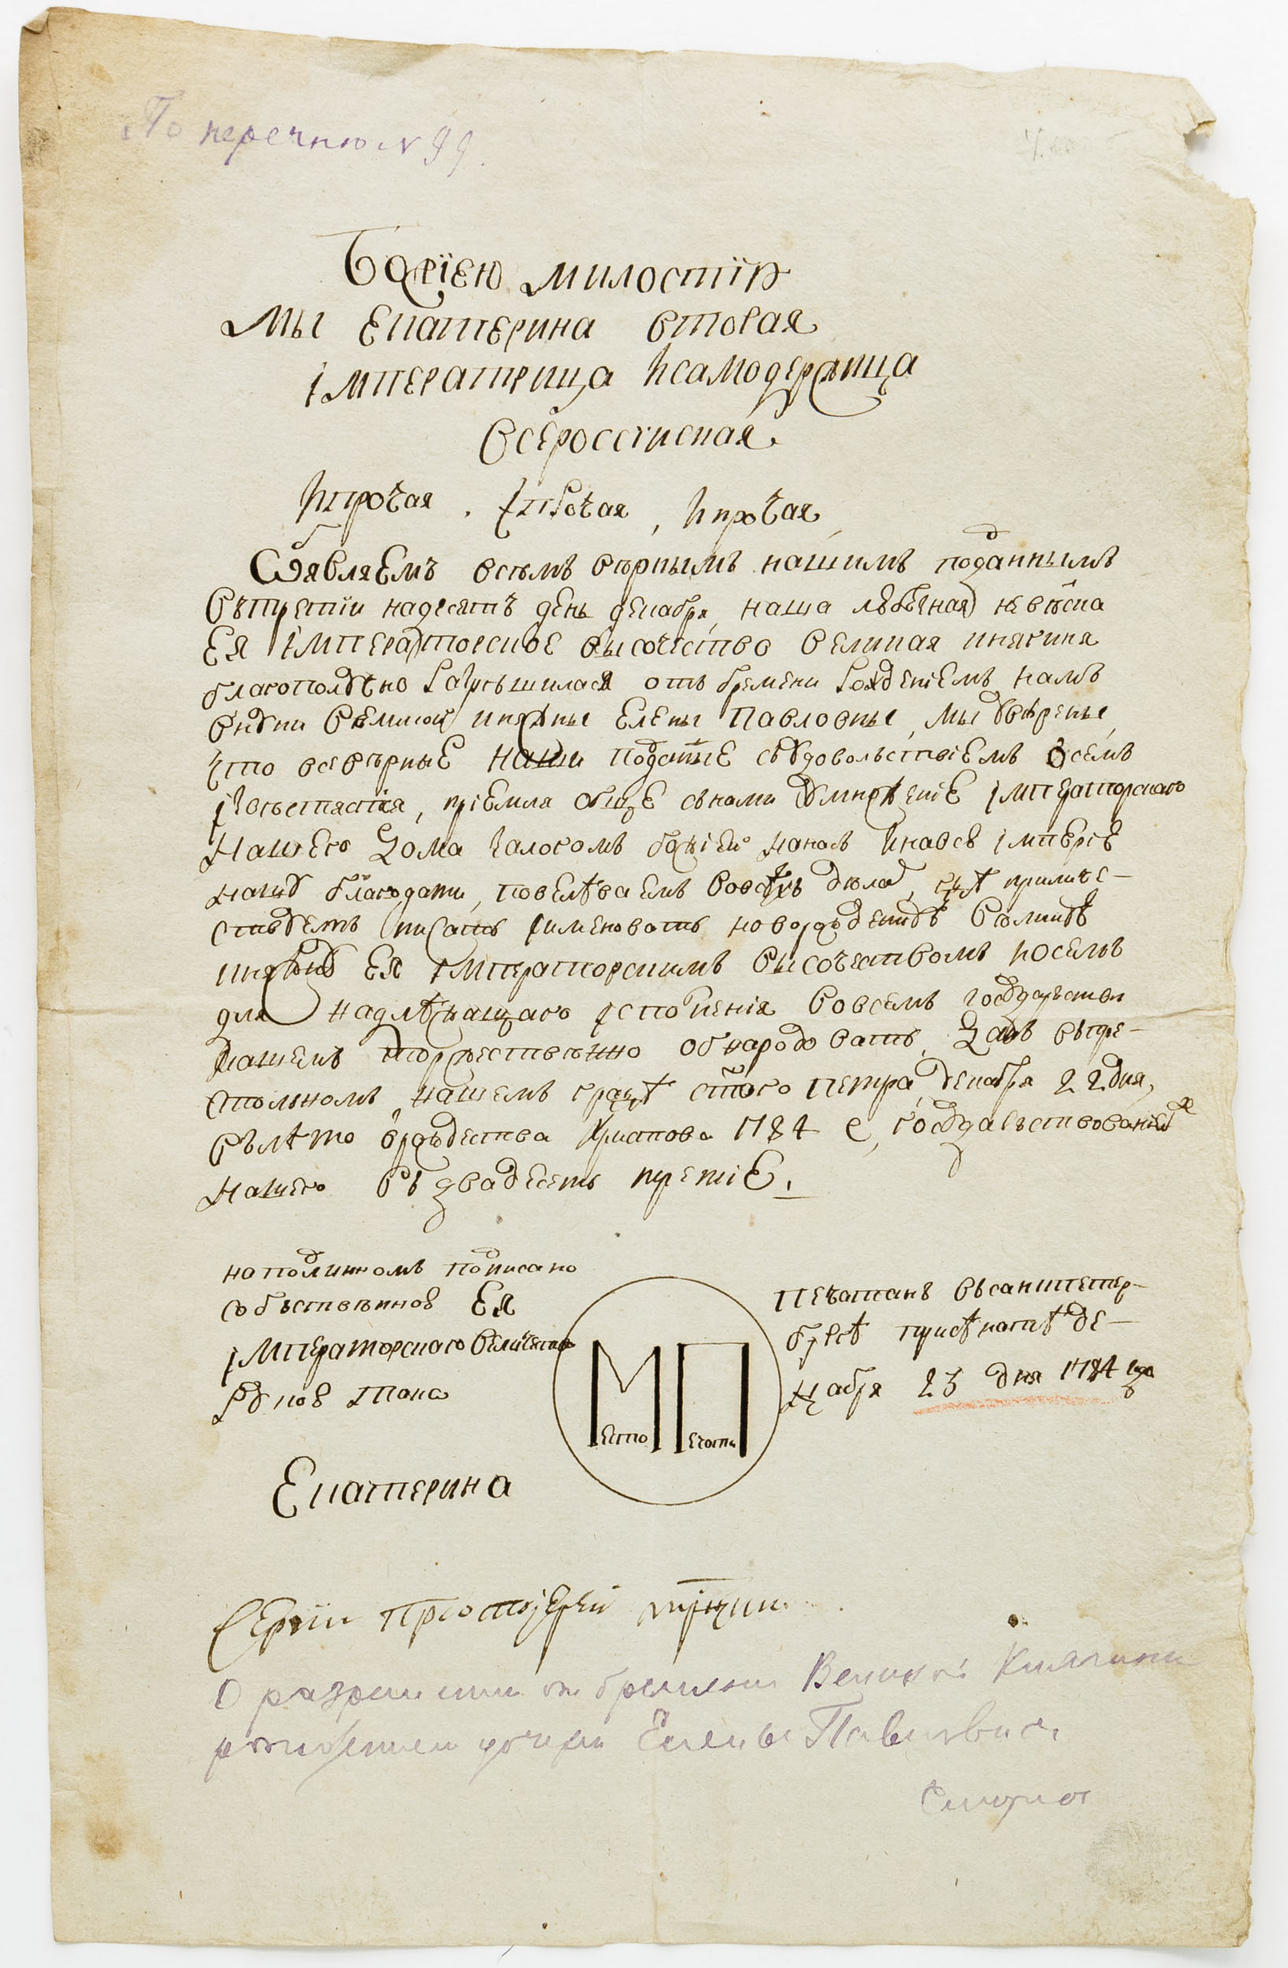 По перечню № 99.
Божіею милостію
Мы Екатерина вторая
імператрица исамодержица
всеросеійская
ипрочая. іпрочая, ипрочая
Объявляемъ всѣмъ вѣрнымъ нашимъ поданнымъ
вътретїи надесять день декабря, наша любезная невѣска
ЕЯ імператорское высочество великая княгиня
благополучно разрѣшилася отъ бремени рожденіемъ намъ
внуки великой княжны Елены Павловны, мы увѣрены
что всевѣрные наши поданые съудовольствіемъ
приемля обще снами умножение імператорскаго
нашего дома залогомъ божіей нанасъ инавсю імперію
нашу благодати, повелѣваемъ вовсѣхъ дѣлахъ, гдѣ приличе-
ствуетъ писать іименовать новорожденную великую
княжну ЕЯ імператорскимъ высочествомъ ивсемъ
для надлѣжащаго исполненія вовсемъ государствѣ
нашемъ торжественно обнародовать, данъ въпре-
стольномъ нашемъ градѣ святого Петра, декабря 22 дня,
вълѣто рождества Христова 1784 е, государствованія
нашего въдвадесять третіе.
наподлинномъ подписано
собственною ЕЯ
імператорскаго величества
рукою тако
Екатерина
МП
есто ечати
Печатанъ въсанктпетер-
бургѣ присѣнатѣ де-
кабря 23 дня 1784 года
О разрешении от бремени Великой Княгини
рождением дочери Елены Павловны